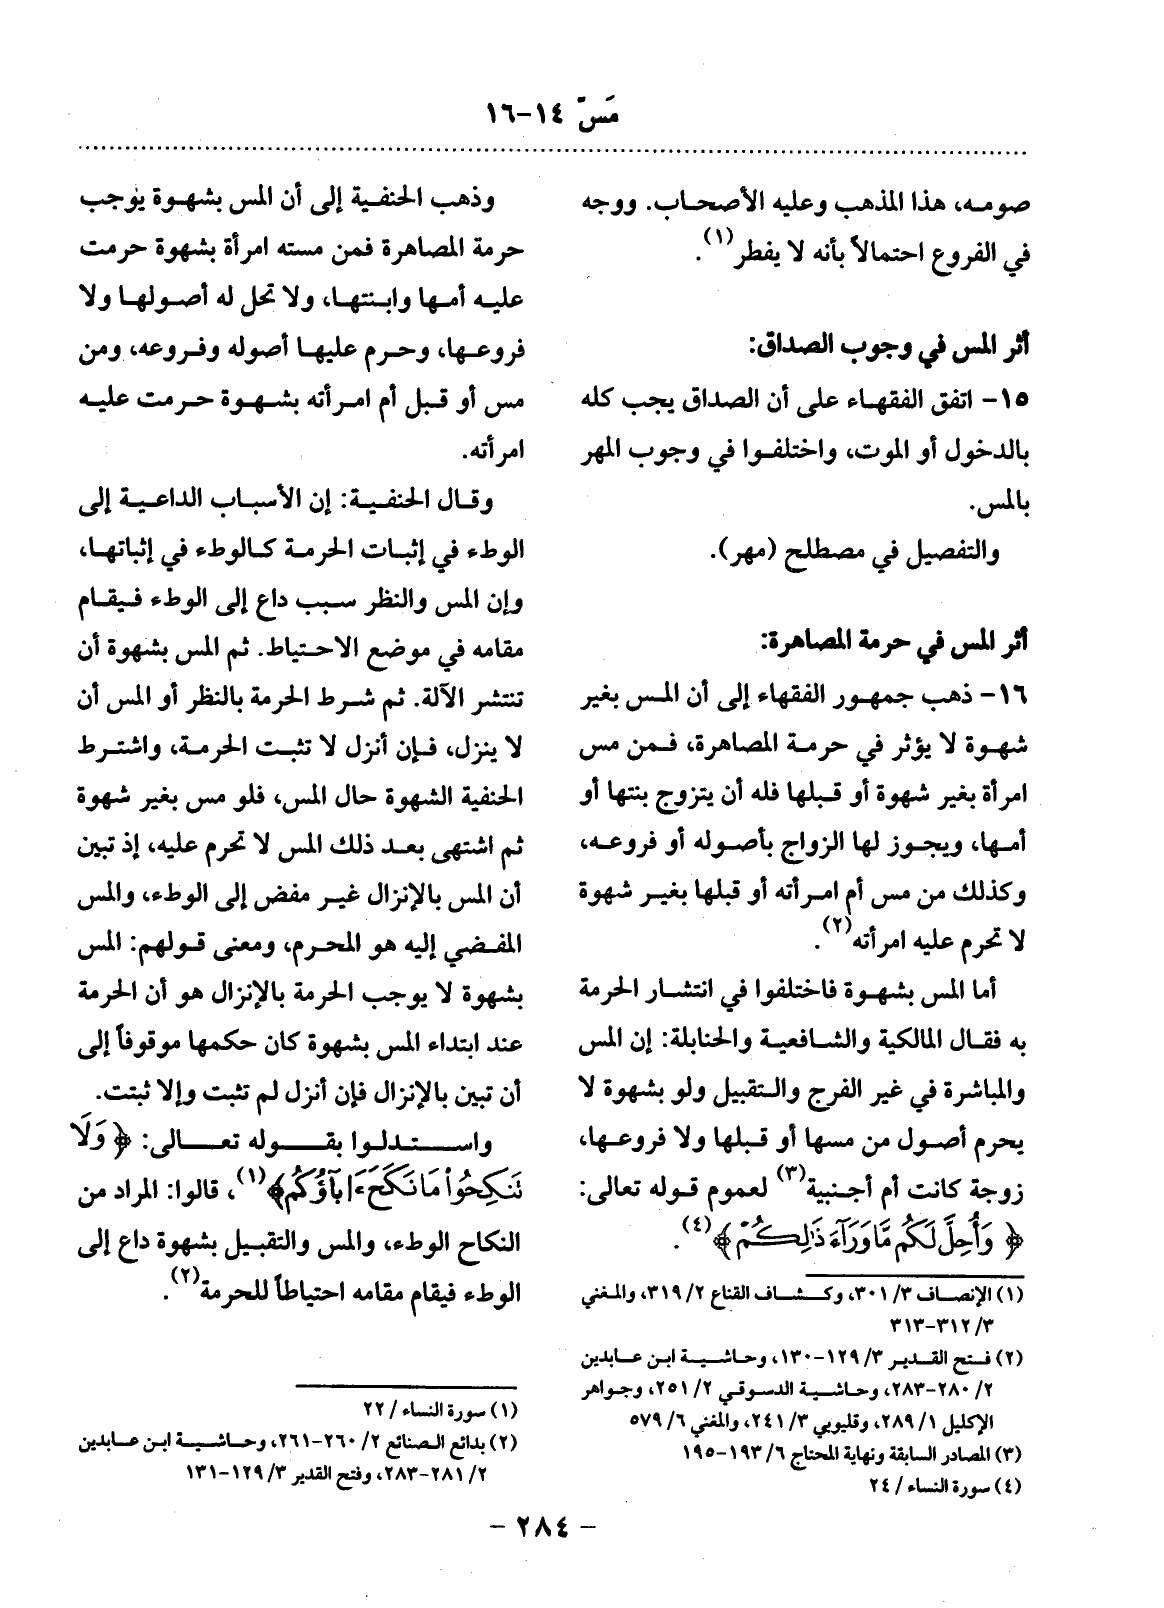 مَسّ ١٤-١٦
صومه، هذا المذهب وعليه الأصحاب. ووجه
في الفروع احتمالاً بأنه لا يفطر(١).
أثر المس في وجوب الصداق:
١٥- اتفق الفقهاء على أن الصداق يجب كله
بالدخول أو الموت، واختلفوا في وجوب المهر
بالمس.
والتفصيل في مصطلح (مهر).
أثر المس في حرمة المصاهرة:
١٦- ذهب جمهور الفقهاء إلى أن المس بغير
شهوة لا يؤثر في حرمة المصاهرة، فمن مس
امرأة بغير شهوة أو قبلها فله أن يتزوج بنتها أو
أمها، ويجوز لها الزواج بأصوله أو فروعه،
وكذلك من مس أم امرأته أو قبلها بغير شهوة
لا تحرم عليه امرأته(٢).
أما المس بشهوة فاختلفوا في انتشار الحرمة
به فقال المالكية والشافعية والحنابلة: إن المس
والمباشرة في غير الفرج والتقبيل ولو بشهوة لا
يحرم أصول من مسها أو قبلها ولا فروعها،
زوجة كانت أم أجنبية(٣) لعموم قوله تعالى:
﴿وَأُحِلَّ لَكُم مَّا وَرَآءَ ذَٰلِكُمْ﴾(٤).
(١) الإنصاف ٣/ ٣٠١، وكشاف القناع ٢/ ٣١٩، والمغني
٣/ ٣١٢-٣١٣
(٢) فتح القدير ٣/ ١٢٩-١٣٠، وحاشية ابن عابدين
٢/ ٢٨٠-٢٨٣، وحاشية الدسوقي ٢/ ٢٥١، وجواهر
الإكليل ١/ ٢٨٩، وقليوبي ٣/ ٢٤١، والمغني ٦/ ٥٧٩
(٣) المصادر السابقة ونهاية المحتاج ٦/ ١٩٣-١٩٥
(٤) سورة النساء / ٢٤
وذهب الحنفية إلى أن المس بشهوة يوجب
حرمة المصاهرة فمن مسته امرأة بشهوة حرمت
عليه أمها وابنتها، ولا تحل له أصولها ولا
فروعها، وحرم عليها أصوله وفروعه، ومن
مس أو قبل أم امرأته بشهوة حرمت عليه
امرأته.
وقال الحنفية: إن الأسباب الداعية إلى
الوطء في إثبات الحرمة كالوطء في إثباتها،
وإن المس والنظر سبب داع إلى الوطء فيقام
مقامه في موضع الاحتياط. ثم المس بشهوة أن
تنتشر الآلة. ثم شرط الحرمة بالنظر أو المس أن
لا ينزل، فإن أنزل لا تثبت الحرمة، واشترط
الحنفية الشهوة حال المس، فلو مس بغير شهوة
ثم اشتهى بعد ذلك المس لا تحرم عليه، إذ تبين
أن المس بالإنزال غير مفض إلى الوطء، والمس
المفضي إليه هو المحرم، ومعنى قولهم: المس
بشهوة لا يوجب الحرمة بالإنزال هو أن الحرمة
عند ابتداء المس بشهوة كان حكمها موقوفاً إلى
أن تبين بالإنزال فإن أنزل لم تثبت وإلا ثبتت.
واستدلوا بقوله تعالى: ﴿وَلَا
تَنكِحُوا۟ مَا نَكَحَ ءَابَآؤُكُم﴾(١)، قالوا: المراد من
النكاح الوطء، والمس والتقبيل بشهوة داع إلى
الوطء فيقام مقامه احتياطاً للحرمة(٢).
(١) سورة النساء / ٢٢
(٢) بدائع الصنائع ٢/ ٢٦٠-٢٦١، وحاشية ابن عابدين
٢/ ٢٨١-٢٨٣، وفتح القدير ٣/ ١٢٩-١٣١
- ٢٨٤ -